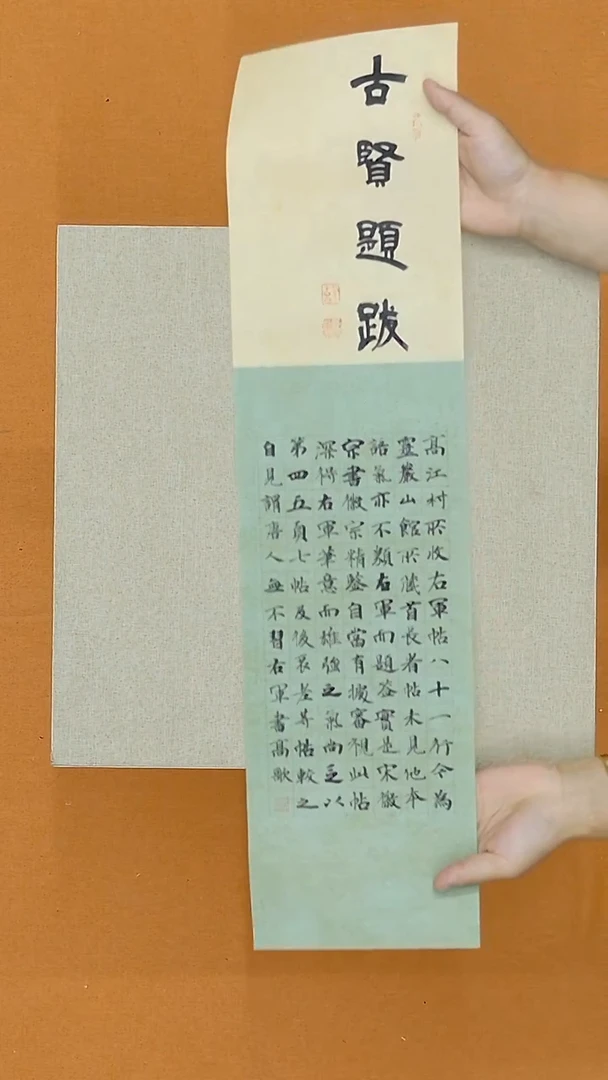 古賢題跋
高江村所收右軍帖八十一行今為
靈巖山館所藏首長者帖未見他本
語氣亦不類右軍而題簽實是宋徽
宗書徽宗精鑒自當有據審視此帖
深得右軍筆意而雄強之氣尚乏以
第四五頁七帖及後等帖較之
自見謂唐人無不習右軍書高歟